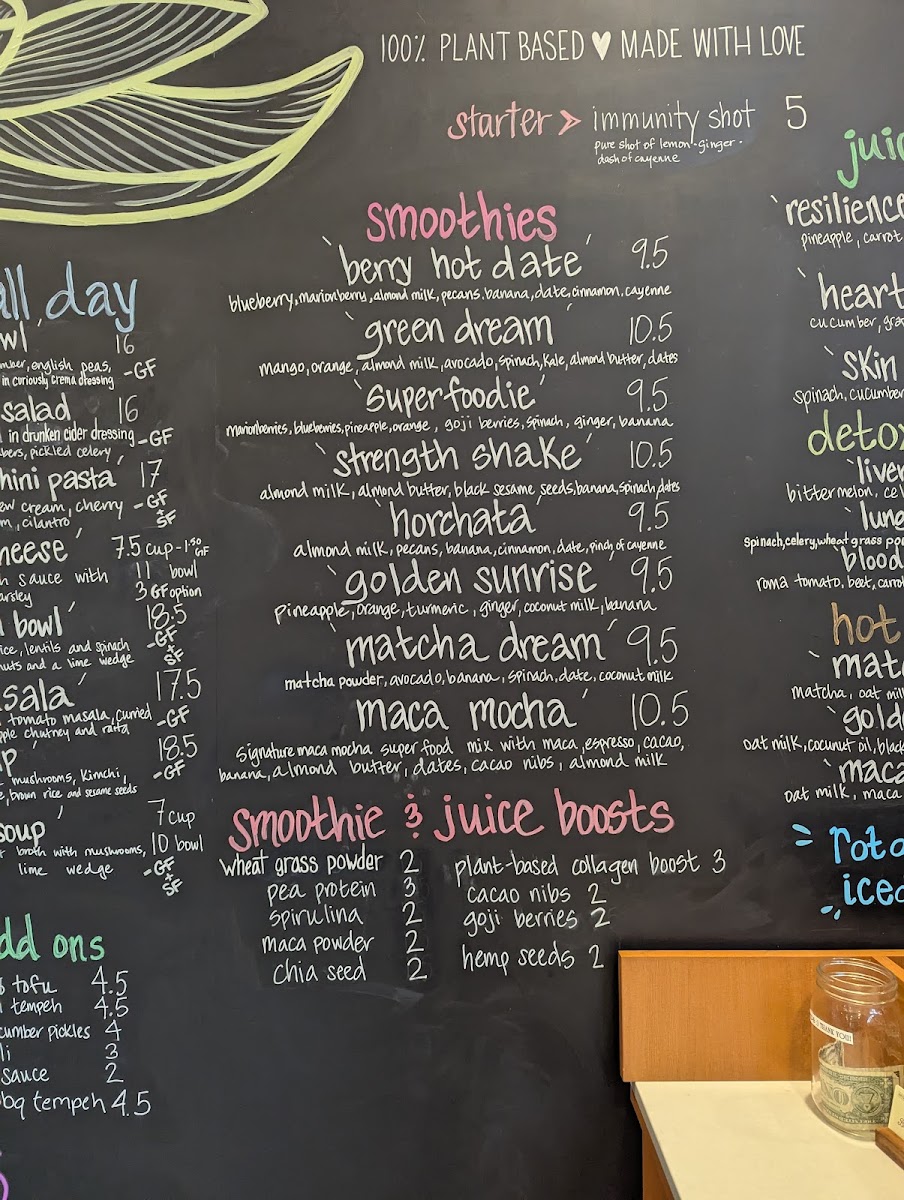 100% PLANT BASED ♥ MADE WITH LOVE
starter > immunity shot 5
pure shot of lemon·ginger·
dash of cayenne
all day
16
english peas,
in curiously crema dressing -GF
salad 16
in drunken cider dressing -GF
pickled celery
pasta' 17
cream, cherry -GF
cilantro + SF
7.5 cup -1.50 GF
sauce with 11 bowl
3 GF option
bowl' 18.5
lentils and spinach -GF
and a lime wedge + SF
17.5
tomato masala, curried -GF
chutney and raita
18.5
mushrooms, kimchi, -GF
brown rice and sesame seeds
soup' 7 cup
broth with mushrooms, 10 bowl
lime wedge -GF
+ SF
add ons
tofu 4.5
tempeh 4.5
pickles 4
3
sauce 2
bbq tempeh 4.5
smoothies
'berry hot date' 9.5
blueberry, marionberry, almond milk, pecans, banana, date, cinnamon, cayenne
'green dream' 10.5
mango, orange, almond milk, avocado, spinach, kale, almond butter, dates
'superfoodie' 9.5
marionberries, blueberries, pineapple, orange, goji berries, spinach, ginger, banana
'strength shake' 10.5
almond milk, almond butter, black sesame seeds, banana, spinach, dates
'horchata' 9.5
almond milk, pecans, banana, cinnamon, date, pinch of cayenne
'golden sunrise' 9.5
pineapple, orange, turmeric, ginger, coconut milk, banana
'matcha dream' 9.5
matcha powder, avocado, banana, spinach, date, coconut milk
'maca mocha' 10.5
signature maca mocha super food mix with maca, espresso, cacao,
banana, almond butter, dates, cacao nibs, almond milk
smoothie & juice boosts
wheat grass powder 2
pea protein 3
spirulina 2
maca powder 2
chia seed 2
plant-based collagen boost 3
cacao nibs 2
goji berries 2
hemp seeds 2
'resilience
pineapple, carrot
'heart
cucumber,
'skin
spinach, cucumber
'liver
bittermelon,
'lung
spinach, celery, wheat grass
'blood
roma tomato, beet,
hot
matcha, oat milk
oat milk, coconut oil, black
'maca
oat milk, maca
THANK YOU!